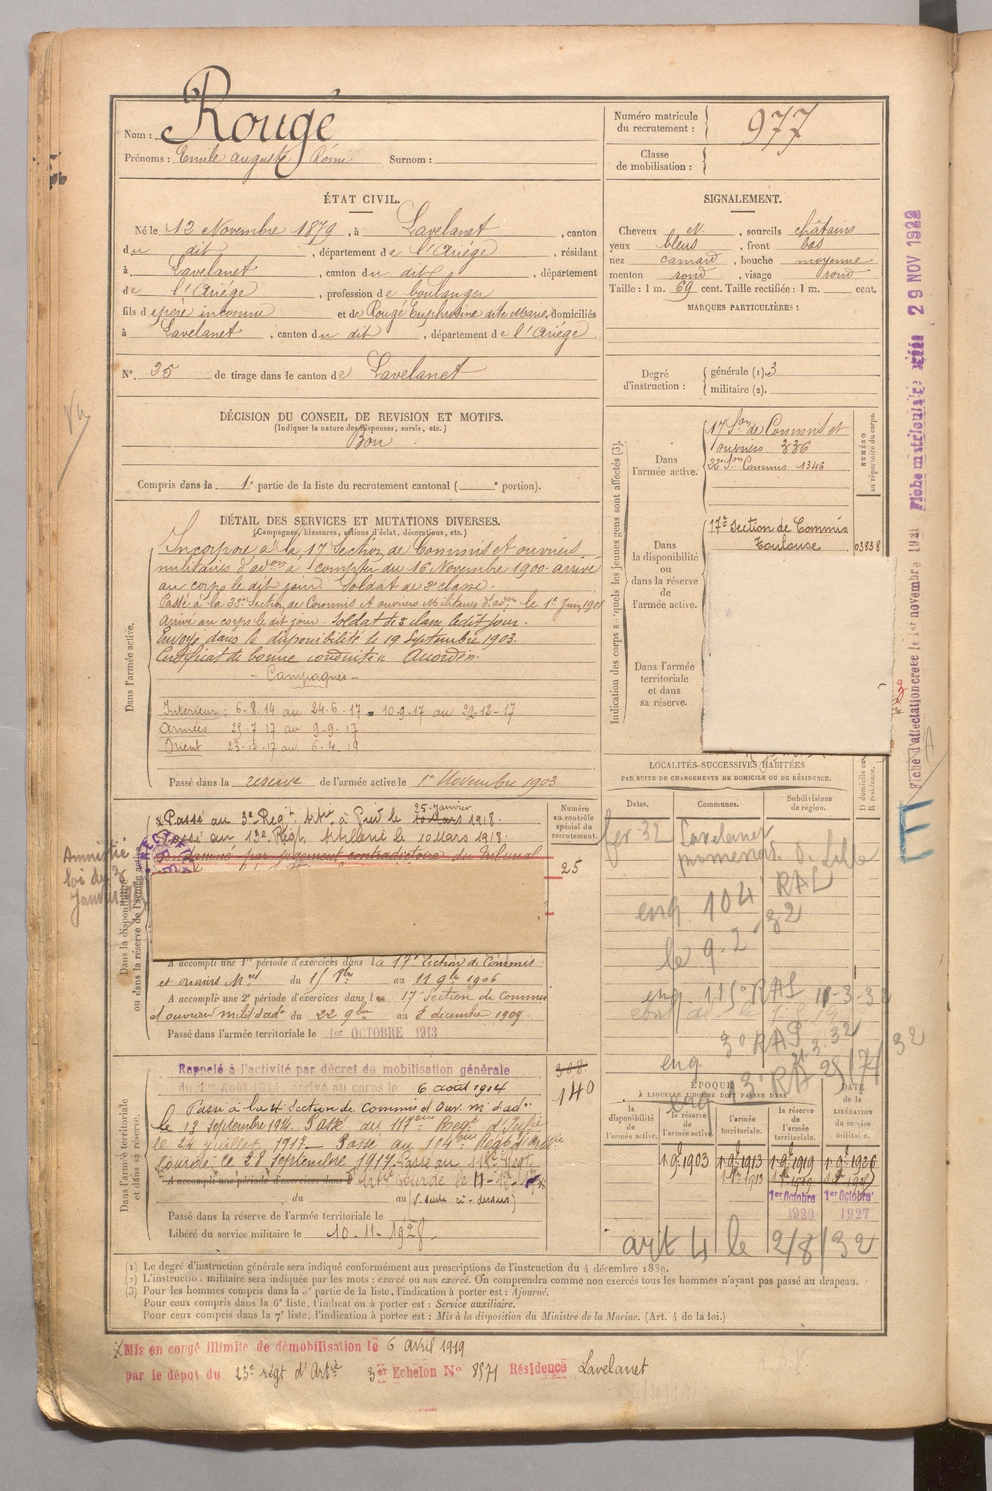 Nom : Rougé
Prénoms : Emile auguste Rémi Surnom :
Numéro matricule du recrutement : 977
Classe de mobilisation :
ÉTAT CIVIL.
Né le 12 Novembre 1879, à Lavelanet, canton
du dit, département de l'Ariége, résidant
à Lavelanet, canton du dit, département
de l'Ariége, profession de boulanger
fils de père inconnu et de Rougé Euphrosine dite Marie, domiciliés
à Lavelanet, canton du dit, département de l'Ariége
N° 25 de tirage dans le canton de Lavelanet
SIGNALEMENT.
Cheveux N., sourcils châtains
yeux bleus, front bas
nez camard, bouche moyenne
menton rond, visage rond
Taille : 1 m. 69 cent. Taille rectifiée : 1 m. cent.
MARQUES PARTICULIÈRES :
Degré d'instruction : générale (1). 3
militaire (2).
DÉCISION DU CONSEIL DE REVISION ET MOTIFS.
(Indiquer la nature des dispenses, sursis, etc.)
Bon
Compris dans la 1e partie de la liste du recrutement cantonal ( e portion).
DÉTAIL DES SERVICES ET MUTATIONS DIVERSES.
(Campagnes, blessures, actions d'éclat, décorations, etc.)
Dans l'armée active.
Incorporé à la 17 Section de Commis et ouvriers
militaires d'adon à compter du 16 Novembre 1900. arrivé
au corps le dit jour. Soldat de 2e classe.
Passé à la Section de Commis et ouvriers Militaires d'adon le 1er Juin 1901
Arrivé au corps le dit jour. Soldat de 2e classe le dit jour.
Envoyé dans la disponibilité le 19 Septembre 1903.
Certificat de bonne conduite Accordé.
- Campagnes -
Intérieur : 6-8-14 au 24-6-17 = 10-9-17 au 22-12-17
Armées 25-7-17 au 9-9-17
Orient 23-12-17 au 6-4-19
Passé dans la réserve de l'armée active le 1er Novembre 1903
Indication des corps auxquels les jeunes gens sont affectés (3).
Dans l'armée active.
17e Son de Commis et
ouvriers 336
22e Son Commis 1346
NUMÉRO au répertoire du corps.
Dans la disponibilité ou dans la réserve de l'armée active.
17e Section de Commis
Toulouse 03838
Dans l'armée territoriale et dans sa réserve.
Dans la disponibilité ou dans la réserve de l'armée active
x Passé au 3e Régt Artie à Pied le 25 Janvier 1918.
Passé au 13e Régt Artillerie le 10 Mars 1918.
Condamné par jugement contradictoire du Tribunal
Amnistié
loi du 3
Janvier
Numéro au contrôle spécial du recrutement.
25
A accompli une 1re période d'exercices dans la 17e Section de Commis
et ouvriers Mres du 15 8bre au 11 9bre 1906
A accompli une 2e période d'exercices dans la 17 Section de Commis
et ouvriers milit d'ad du 22 9bre au 8 décembre 1909.
Passé dans l'armée territoriale le 1er OCTOBRE 1913
LOCALITÉS SUCCESSIVES HABITÉES
PAR SUITE DE CHANGEMENTS DE DOMICILE OU DE RÉSIDENCE.
Dates. Communes. Subdivisions de région. D domicile ou R résidence.
fer 32 Lavelanet
promenad. d. Lille
enq. 104 RAL
le 9-2-32
enq. 115e RAL 11-3-32
3e RAP
enq. 13e RA
Dans l'armée territoriale et dans sa réserve.
Rappelé à l'activité par décret de mobilisation générale
du 1er Août 1914, arrivé au corps le 6 août 1914
308
140
le 13 Septembre 1914. Passé au 117eme Régt d'Artie
le 24 juillet 1917. Passé au 114eme Régt d'Artie
Lourde le 28 Septembre 1917. Passé au 115e Régt
A accompli une période d'exercices dans l
Artie Lourde le
du au (suite ci-dessus)
Passé dans la réserve de l'armée territoriale le
Libéré du service militaire le 10.11.1928.
ÉPOQUE
À LAQUELLE L'HOMME DOIT PASSER DANS
la disponibilité de l'armée active. la réserve de l'armée active. l'armée territoriale. la réserve de l'armée territoriale. DATE de la LIBÉRATION du service militaire.
1.9bre.1903 1.9bre.1913 1.9bre.1919 1.9bre.1926
1er Octobre 1920 1er Octobre 1927
art 4 le 2/8/32
(1) Le degré d'instruction générale sera indiqué conformément aux prescriptions de l'instruction du 4 décembre 1889.
(2) L'instruction militaire sera indiquée par les mots : exercé ou non exercé. On comprendra comme non exercés tous les hommes n'ayant pas passé au drapeau.
(3) Pour les hommes compris dans la 5e partie de la liste, l'indication à porter est : Ajourné.
Pour ceux compris dans la 6e liste, l'indication à porter est : Service auxiliaire.
Pour ceux compris dans la 7e liste, l'indication à porter est : Mis à la disposition du Ministre de la Marine. (Art. 4 de la loi.)
x Mis en congé illimité de démobilisation le 6 avril 1919
par le dépôt du 23e régt d'Artie 3er Echelon N° 8571 Résidence Lavelanet
Fiche d'affectation créée le 1er novembre 1921
Fiche matriculaire créée 29 NOV 1922
E